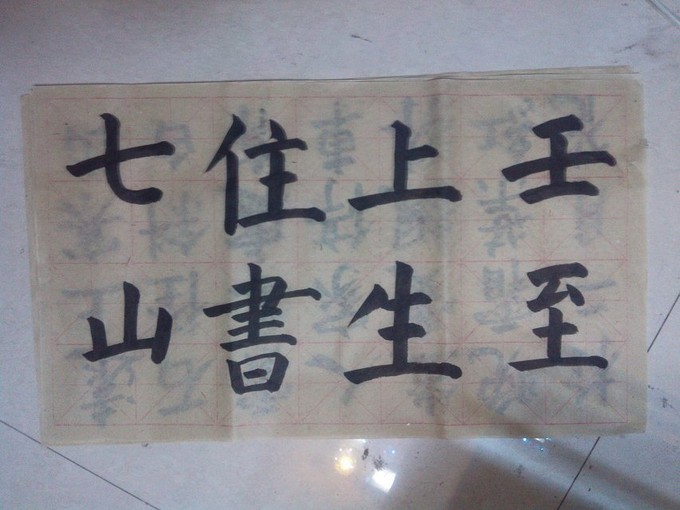 壬至
上生
住書
七山